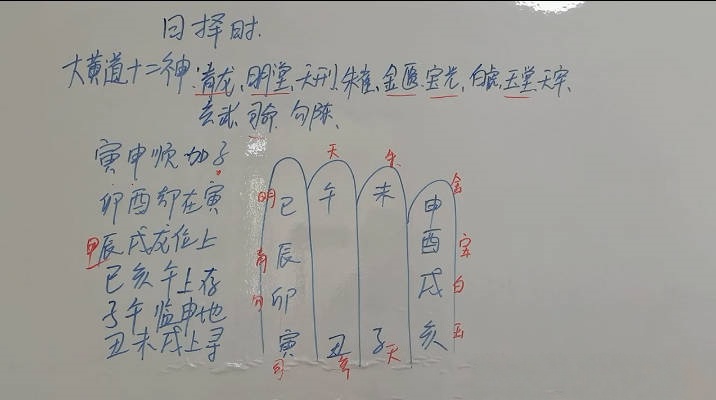 日择时.
大黄道十二神:青龙、明堂、天刑、朱雀、金匮、宝光、白虎、玉堂、天牢、
玄武、司命、勾陈、
寅申顺加子
卯酉却在寅
甲辰戌龙位上
巳亥午上存
子午临申地
丑未戌上寻
天 朱
明 巳 午 未 申 金
酉 宝
青 辰 戌 白
勾 卯
寅 丑 子 亥 玉
司 玄 天